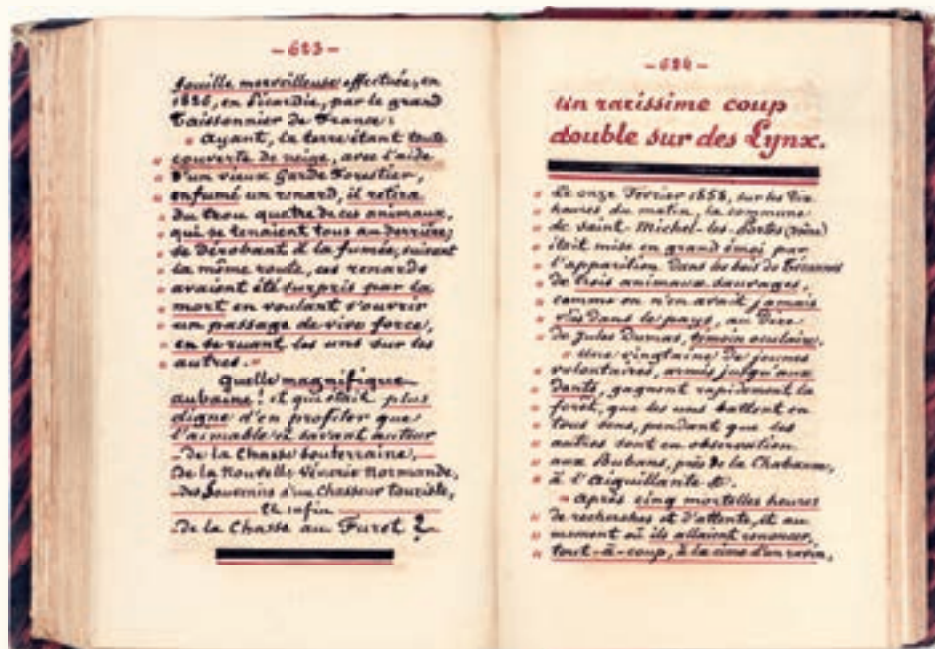 - 623 -
fouille merveilleuse effectuée, en
1826, en Picardie, par le grand
Taissonnier de France :
« Ayant, la terre étant toute
« couverte de neige, avec l'aide
« d'un vieux Garde Forestier,
« enfumé un renard, il retira
« du trou quatre de ces animaux,
« qui se tenaient tous au derrière;
« se dérobant à la fumée, suivant
« la même route, ces renards
« avaient été surpris par la
« mort en voulant s'ouvrir
« un passage de vive force,
« en se ruant les uns sur les
« autres. »
Quelle magnifique
aubaine ! et qui était plus
digne d'en profiter que
l'aimable et savant auteur
de la Chasse Souterraine,
de la Nouvelle Vénerie Normande,
des Souvenirs d'un Chasseur touriste,
et enfin
de la Chasse au Furet ?
- 624 -
Un rarissime coup
double sur des Lynx.
« Le onze Février 1858, sur les dix
« heures du matin, la commune
« de Saint-Michel-les-Portes
« était mise en grand émoi par
« l'apparition dans les bois de
« de trois animaux sauvages,
« comme on n'en avait jamais
« vus dans le pays, au dire
« de Jules Dumas, témoin oculaire.
« Une vingtaine de jeunes
« volontaires, armés jusqu'aux
« dents, gagnent rapidement la
« forêt, que les uns battent en
« tous sens, pendant que les
« autres sont en observation
« aux Bubans, près de la Chabanne,
« à l'Aiguillante &.
« Après cinq mortelles heures
« de recherches et d'attente, et au
« moment où ils allaient renoncer,
« tout-à-coup, à la cime d'un ravin,